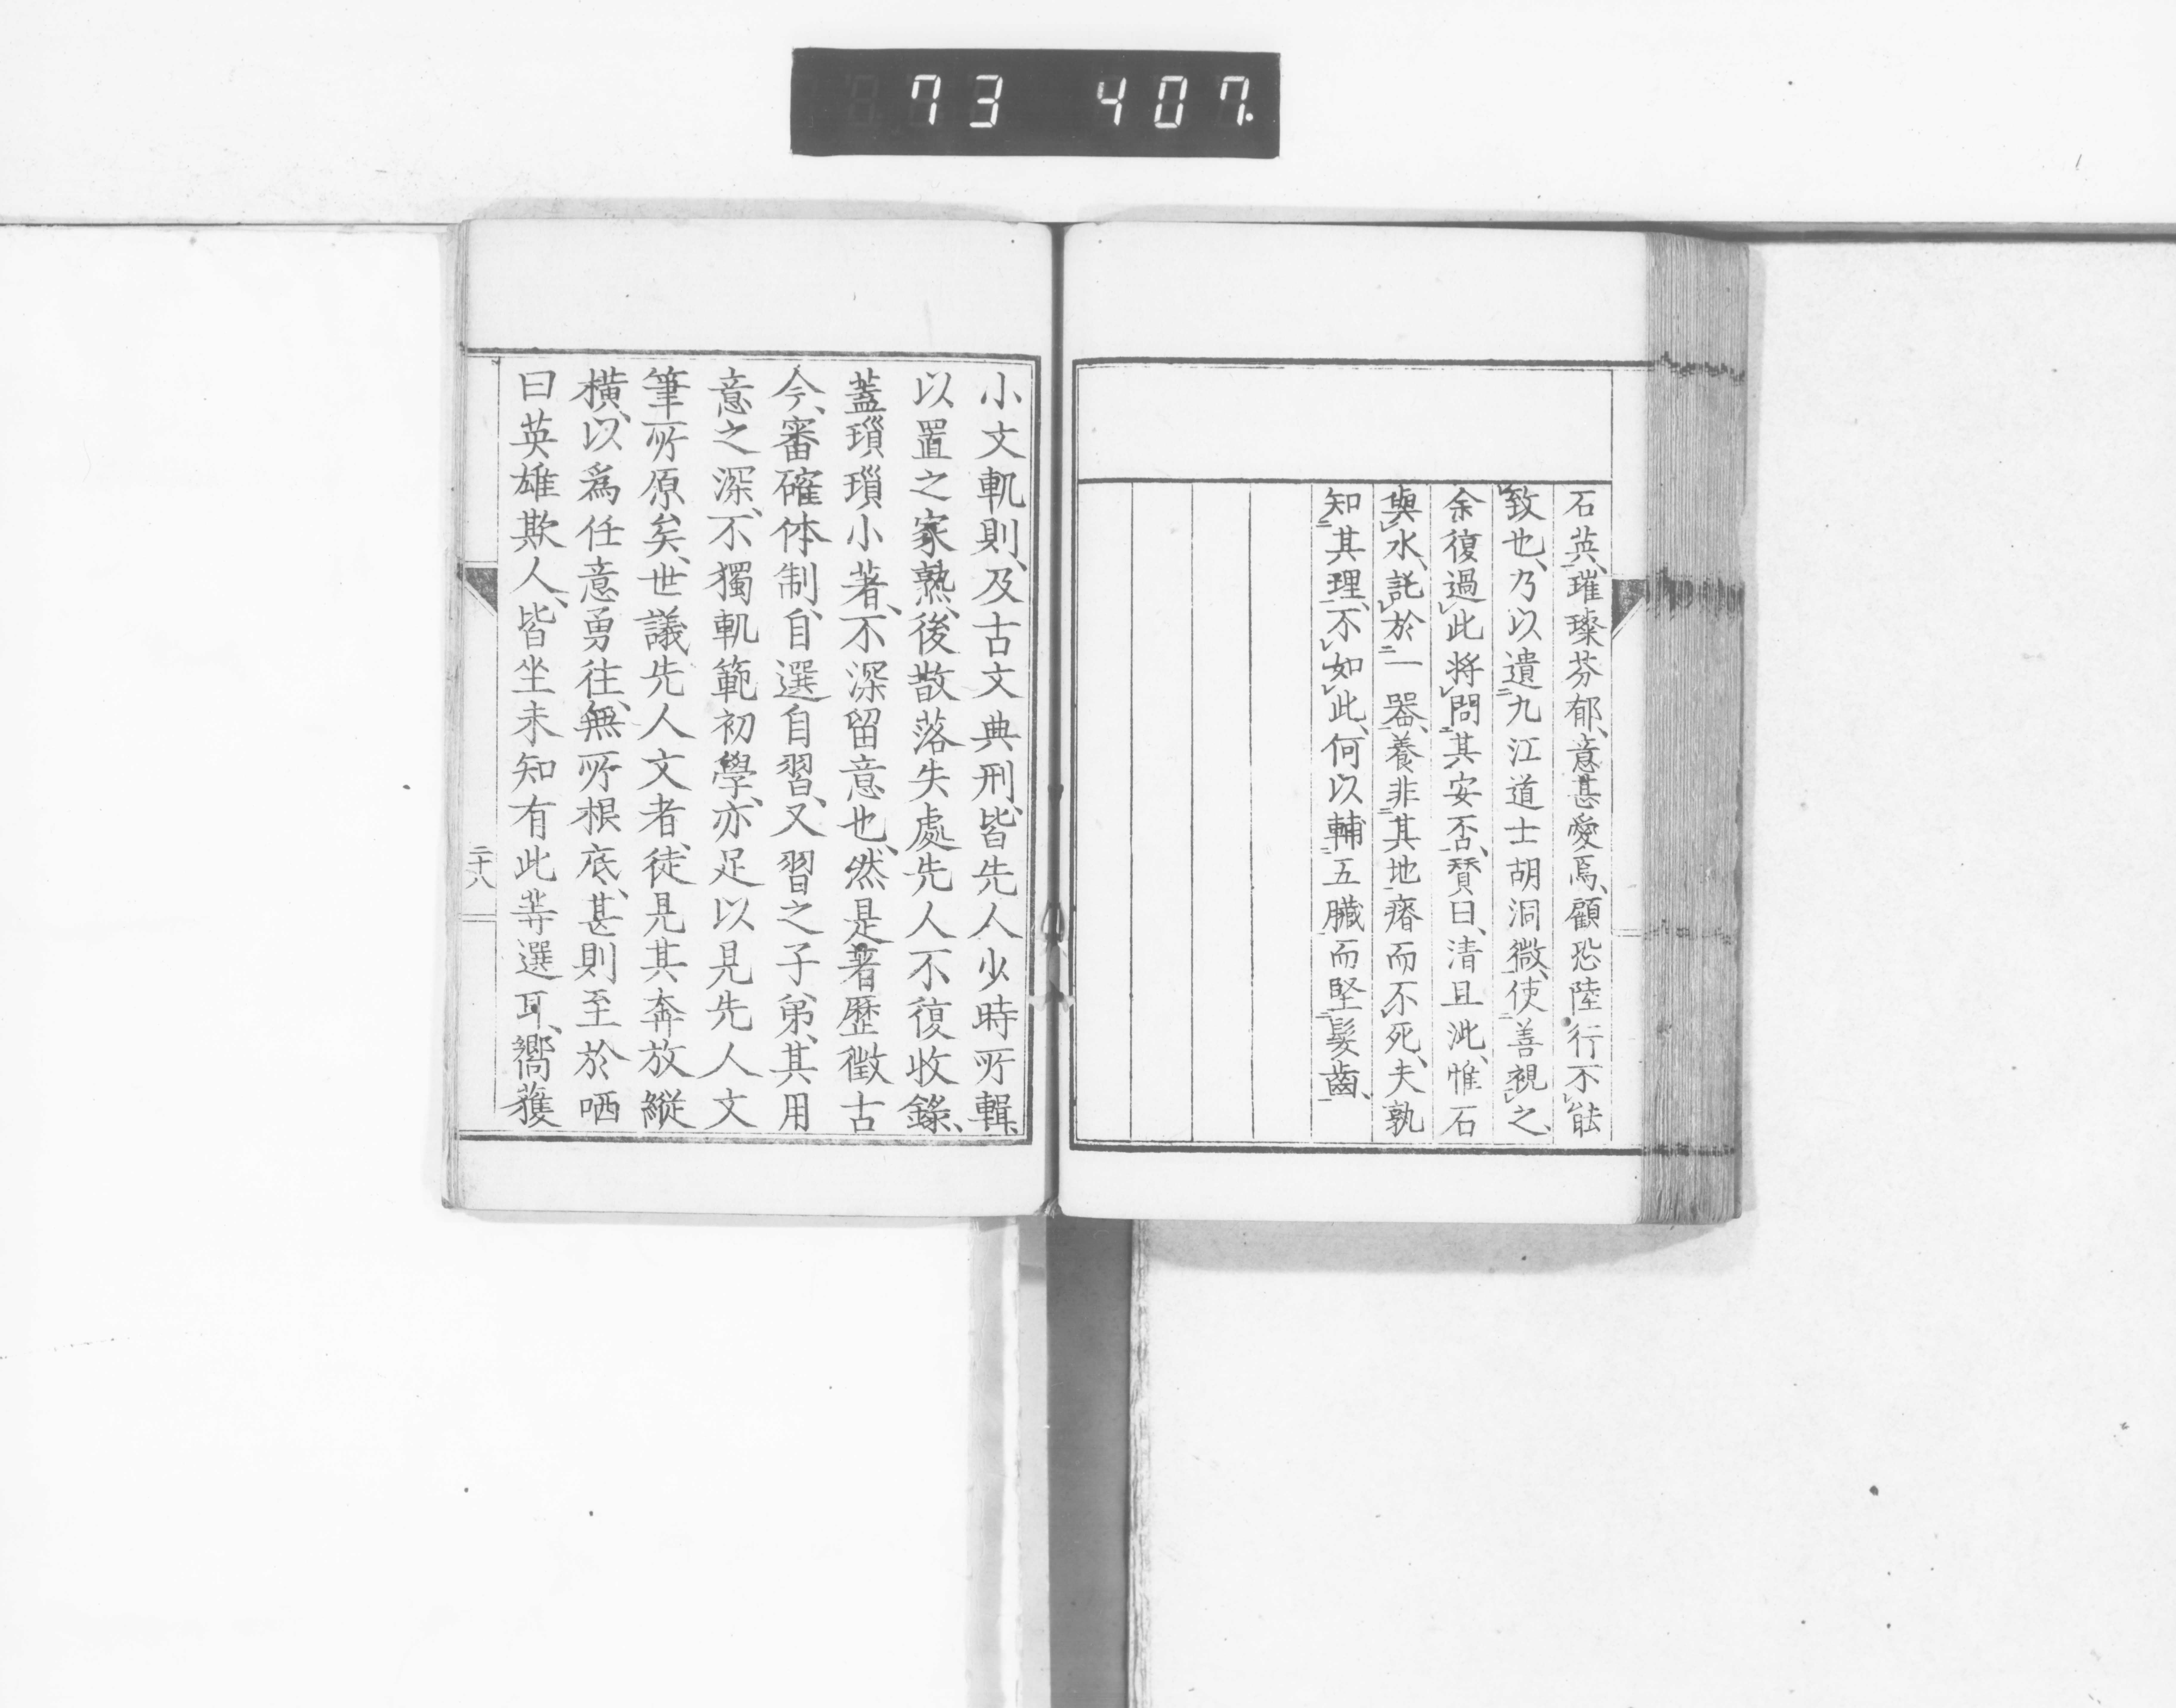 73 407.
石英、璀璨芬郁、意甚愛焉、顧恐陸行不能
致也、乃以遺九江道士胡洞微、使善視之、
余復過此將問其安否、贊曰、清且泚、惟石
與水、託於一器、養非其地瘠而不死、夫孰
知其理、不如此、何以輔五臟而堅髮齒、
小文軌則、及古文典刑、皆先人少時所輯、
以置之家熟、後散落失處先人不復收錄、
蓋瑣瑣小著、不深留意也、然是著歷徵古
今、審確体制、自選自習、又習之子弟、其用
意之深、不獨軌範初學、亦足以見先人文
筆所原矣、世議先人文者、徒見其奔放縱
橫、以爲任意勇往、無所根底、甚則至於哂
曰英雄欺人、皆坐未知有此等選耳、嚮獲
二十八